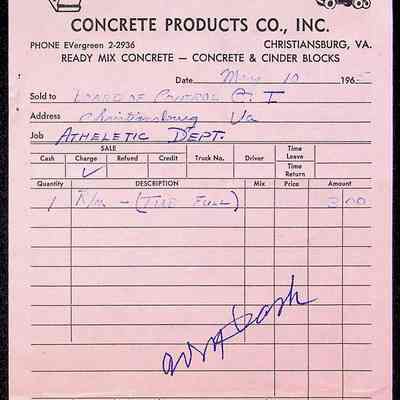 CONCRETE PRODUCTS CO., INC.
PHONE EVergreen 2-2936 CHRISTIANSBURG, VA.
READY MIX CONCRETE — CONCRETE & CINDER BLOCKS
Date May 10 196
Sold to BOARD OF CONTROL C. I
Address Christiansburg Va
Job ATHELETIC DEPT.
SALE
Cash Charge Refund Credit Truck No. Driver Time Leave
✓ Time Return
Quantity DESCRIPTION Mix Price Amount
1 R/M - (TIRE FULL) 3 00